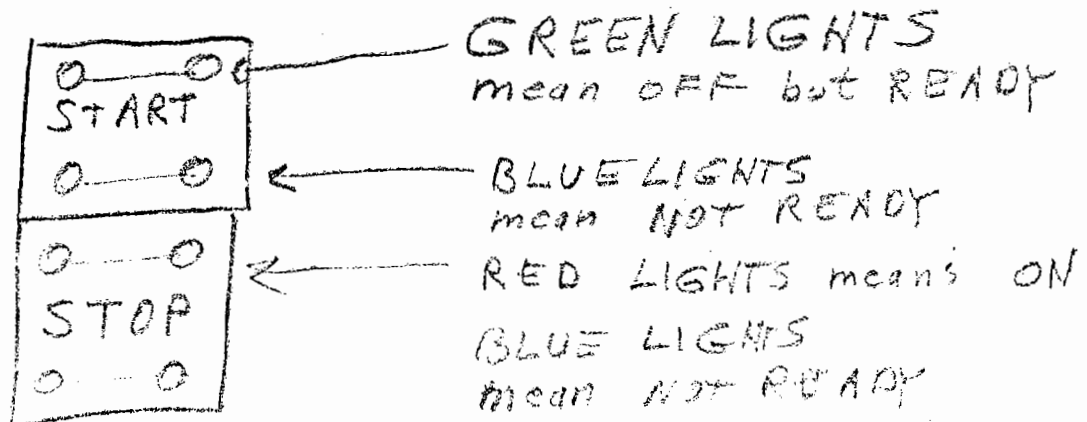 GREEN LIGHTS
mean OFF but READY
START
BLUE LIGHTS
mean NOT READY
RED LIGHTS means ON
STOP
BLUE LIGHTS
mean NOT READY